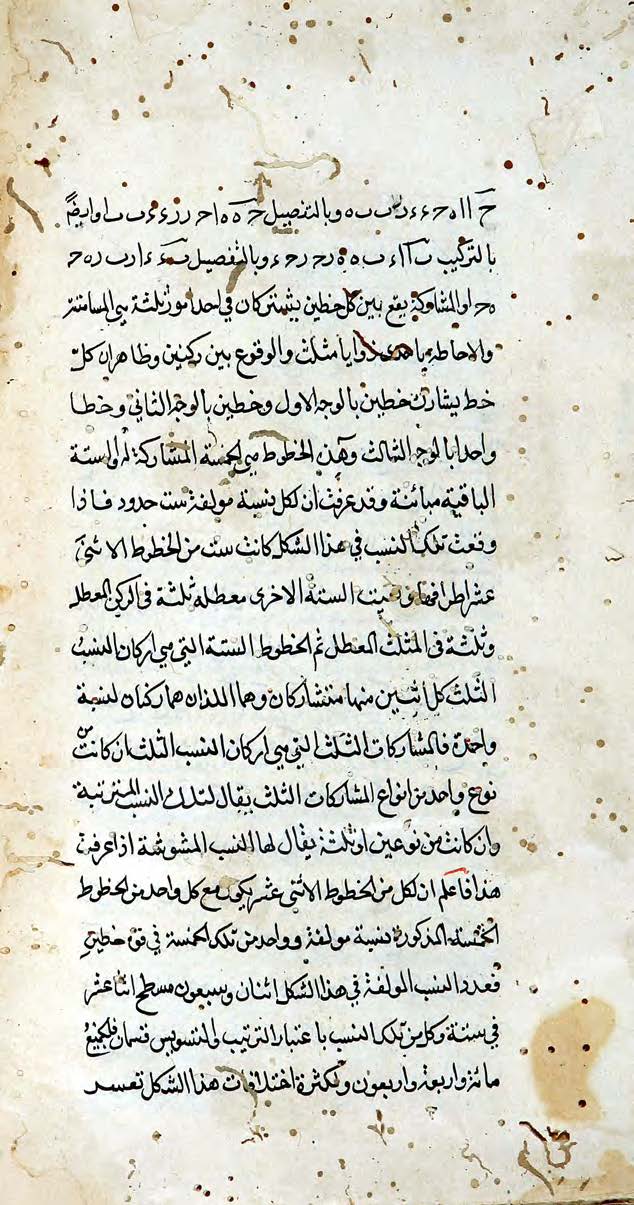 وبالتفصيل اوايضًا
بالتركيب وبالتفصيل
والمشاركة يقع بين كل خطين يشتركان في احد امور ثلثة هي المسامتة
والاحاطة باحدى زوايا مثلث والوقوع بين ركنين وظاهر ان كل
خط يشارك خطين بالوجه الاول وخطين بالوجه الثاني وخطا
واحدا بالوجه الثالث وهذه الخطوط هي الخمسة المشاركة له والستة
الباقية مباينة وقد عرفت ان لكل نسبة مولفة ست حدود فاذا
وقعت تلك النسب في هذا الشكل كانت ست من الخطوط الاثنى
عشر اطرافها وبقيت الستة الاخرى معطلة ثلثة في الركن المعطل
وثلثة في المثلث المعطل ثم الخطوط الستة التي هي اركان النسب
الثلث كل اثنين منها متشاركان وهما اللذان هما ركنان لنسبة
واحدة فالمشاركات الثلث التي هي اركان النسب الثلث ان كانت من
نوع واحد من انواع المشاركات الثلث يقال لتلك النسب المترتبة
وان كانت من نوعين او ثلثة يقال لها النسب المشوشة اذا عرفت
هذا فاعلم ان لكل من الخطوط الاثنى عشر يكون مع كل واحد من الخطوط
الخمسة المذكورة نسبة مولفة وواحد من تلك الخمسة في قوة خطين
فعدد النسب المولفة في هذا الشكل اثنان وسبعون مسطح اثنا عشر
في ستة وكل من تلك النسب باعتبار الترتيب والتشويش قسمان فالجميع
مائة واربعة واربعون ولكثرة اختلافات هذا الشكل تعسد